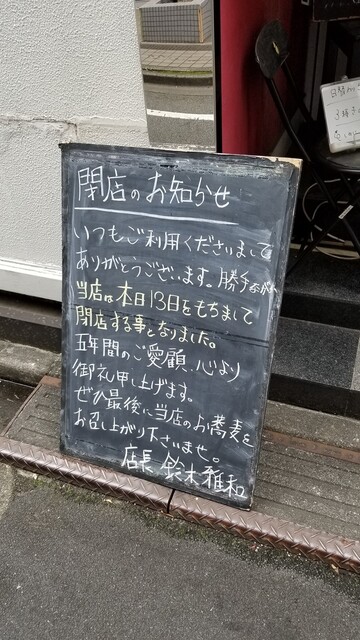 閉店のお知らせ
いつもご利用くださいまして
ありがとうございます。勝手ながら
当店は本日13日をもちまして
閉店する事となりました。
五年間のご愛顧、心より
御礼申し上げます。
ぜひ最後に当店のお蕎麦を
お召し上がり下さいませ。
店長 鈴木雅和